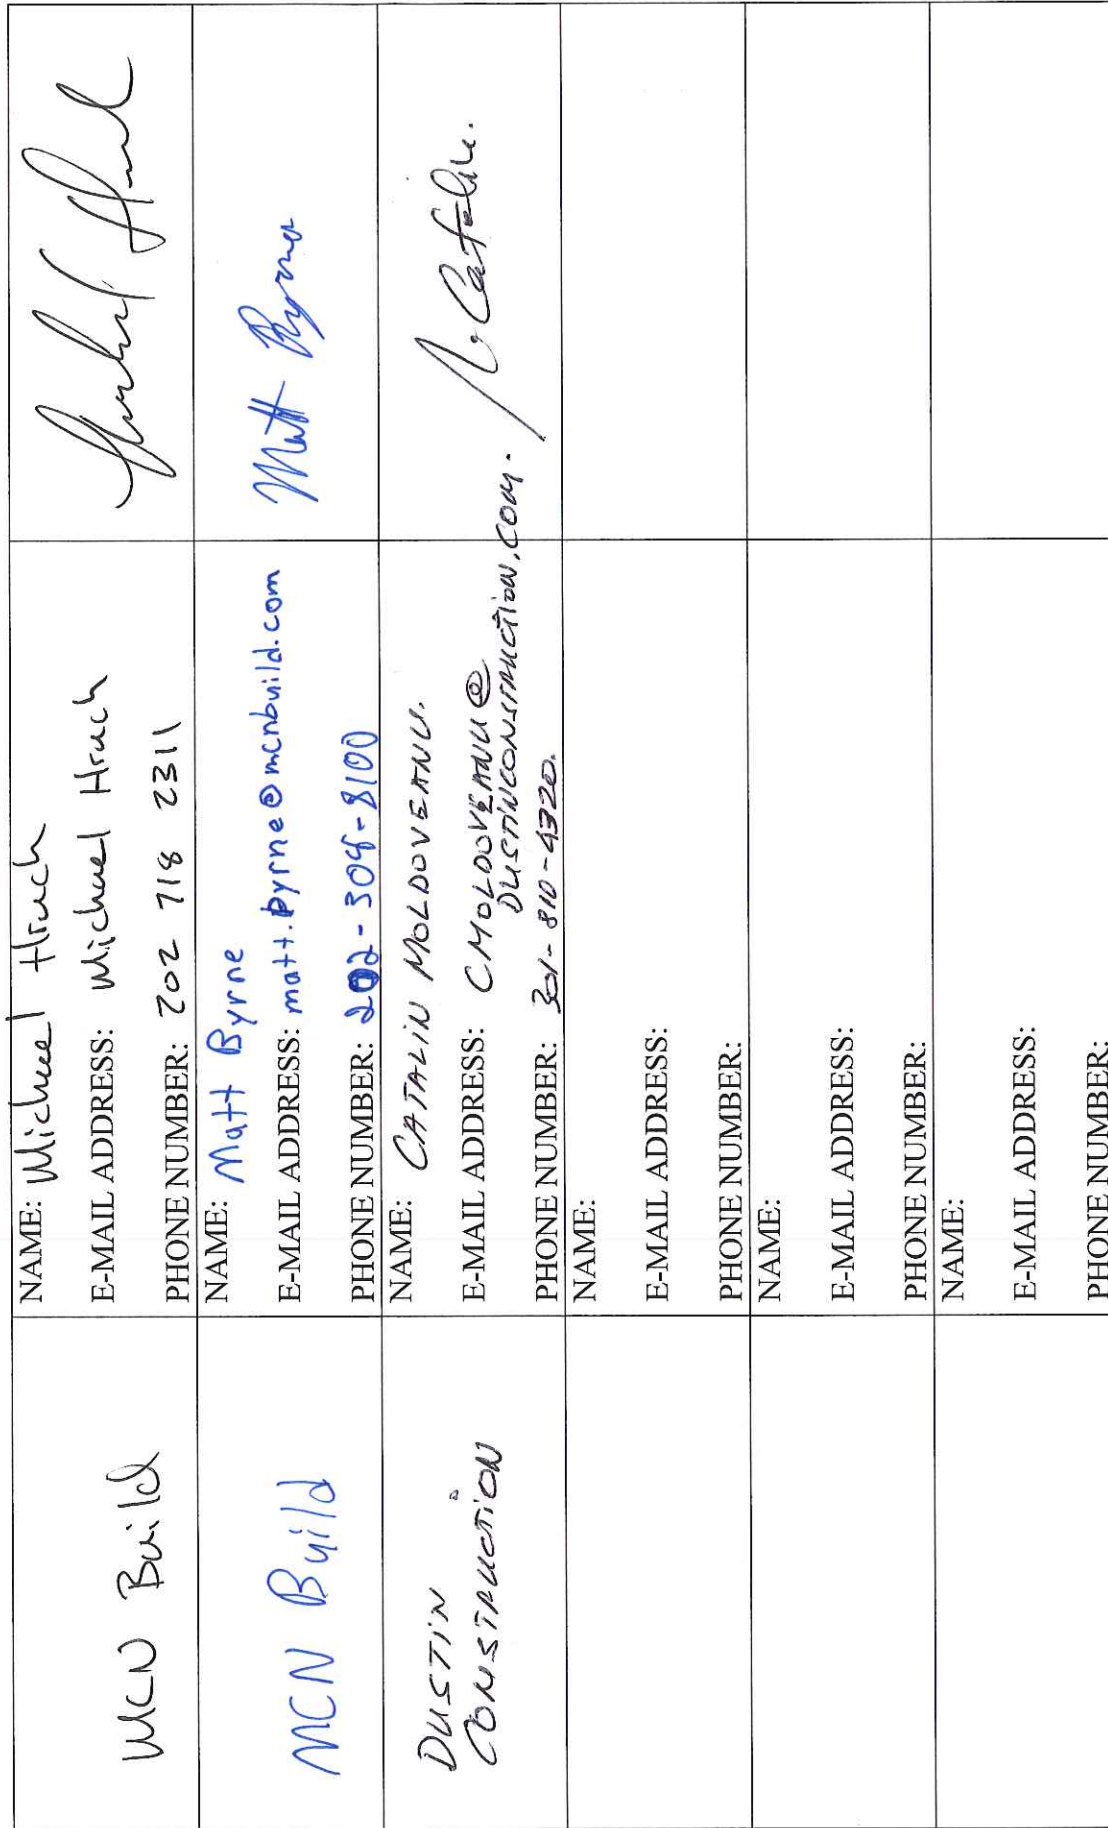 MCN Build
NAME: Michael Hruch
E-MAIL ADDRESS: Michael Hruch
PHONE NUMBER: 202 718 2311
MCN Build
NAME: Matt Byrne
E-MAIL ADDRESS: matt.byrne@mcnbuild.com
PHONE NUMBER: 202-309-8100
Matt Byrne
DUSTIN
CONSTRUCTION
NAME: CATALIN MOLDOVEANU.
E-MAIL ADDRESS: CMOLDOVEANU@
DUSTINCONSTRUCTION.COM.
PHONE NUMBER: 301-810-4320.
NAME:
E-MAIL ADDRESS:
PHONE NUMBER:
NAME:
E-MAIL ADDRESS:
PHONE NUMBER:
NAME:
E-MAIL ADDRESS:
PHONE NUMBER: